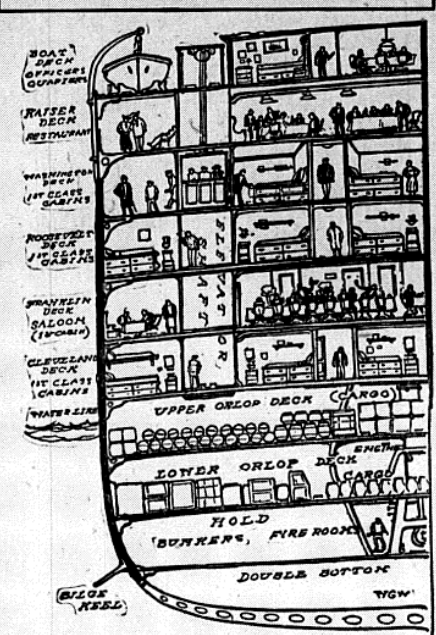 BOAT
DECK
OFFICERS
QUARTERS
KAISER
DECK
RESTAURANT
WASHINGTON
DECK
1ST CLASS
CABINS
ROOSEVELT
DECK
1ST CLASS
CABINS
FRANKLIN
DECK
SALOON
(1ST CABIN)
CLEVELAND
DECK
1ST CLASS
CABINS
WATERLINE
ELEVATOR
SHAFT
UPPER ORLOP DECK (CARGO)
LOWER ORLOP DECK
CARGO
HOLD
BUNKERS, FIRE ROOM
DOUBLE BOTTOM
BILGE
KEEL
WGW